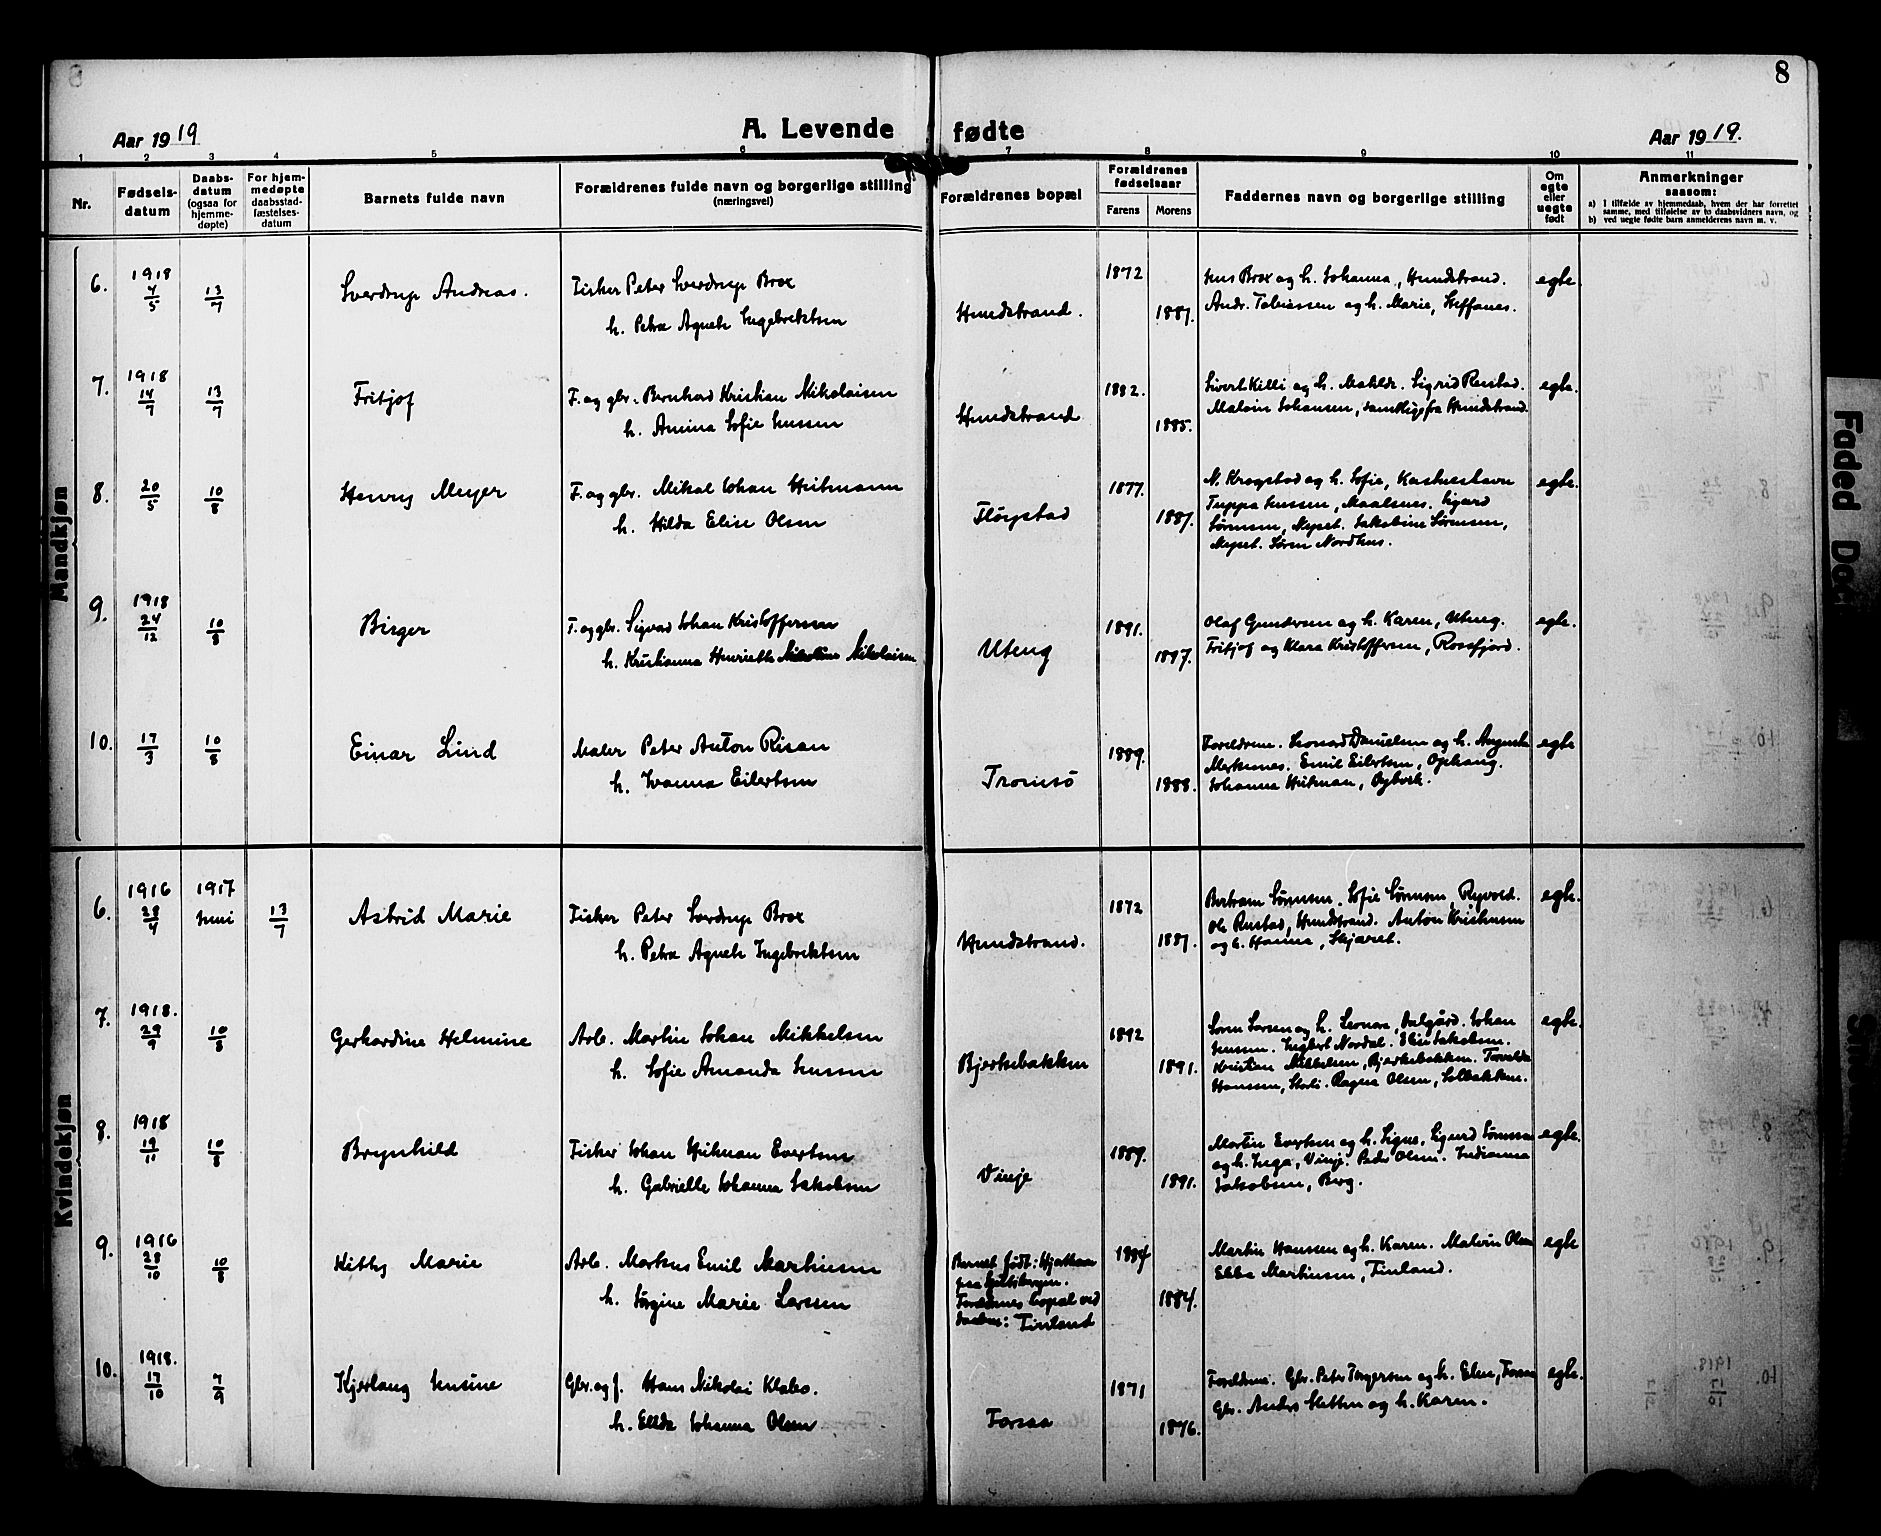 8
Aar 1919
A. Levende fødte
Aar 1919.
1 2 3 4 5 6 7 8 9 10 11
Nr.
Fødsels-
datum
Daabs-
datum
(ogsaa for
hjemme-
døpte)
For hjem-
medøpte
daabsstad-
fæstelses-
datum
Barnets fulde navn
Forældrenes fulde navn og borgerlige stilling
(næringsvei)
Forældrenes bopæl
Forældrenes
fødselsaar
Farens
Morens
Faddernes navn og borgerlige stilling
Om
egte
eller
uegte
født
Anmerkninger
saasom:
a) I tilfælde av hjemmedaab, hvem der har forrettet
samme, med tilføielse av to daabsvidners navn, og
b) ved uegte fødte barn anmelderens navn m. v.
Mandkjøn
6. 1918 4/5 13/7 Sverdrup Andreas.
Fisker Peter Sverdrup Brox
h. Petra Agnete Ingebrektsen
Hundstrand.
1872
1887.
Jens Brox og h. Johanna, Hundstrand.
Andr. Tobiassen og h. Marie, Steffanes.
egte.
7. 1918 14/7 13/7 Fritjof
F. og gbr. Bernhard Kristian Mikolaisen
h. Amina Sofie Jensen
Hundstrand
1882.
1885.
Sivert Killi og h. Matilde. Sigrid Rustad.
Malvin Johansen, samtlige fra Hundstrand.
egte.
8. 20/5 10/8 Henry Meyer
F. og gbr. Mikal Johan Heitmann
h. Hilda Elise Olsen
Fløgstad
1877.
1887.
N. Krogstad og h. Sofie,
Jensen, Maalsnes. Sigurd
Sørensen, Nyset. Jakobine Sørensen,
Nyset. Søren Nordhus.
egte.
9. 1918 24/12 10/8 Birger
F. og gbr. Sigvad Johan Kristoffersen
h. Kristianna Henriette Mikolaisen
Uteng
1891.
1897.
Olaf Gundersen og h. Karen, Uteng.
Fritjof og Klara Kristoffersen, Rossfjord.
egte.
10. 17/3 10/8 Einar Lind
Maler Peter Anton Risan
h. Ivanna Eilertsen
Tromsö
1889.
1888.
Foreldrene. Leonard Danielsen og h. Augusta
Emil Eilertsen, Ophaug.
Johanna Heitman,
egte
Kvindekjøn
6. 1916 28/4 1917 Juni 13/7 Astrid Marie
Fisker Peter Sverdrup Brox
h. Petra Agnete Ingebrektsen
Hundstrand.
1872
1887.
Bertram Sørensen. Sofie Sørensen, Ryvold.
Ole Rustad, Hundstrand. Anton Kristensen
og h. Hanna, Skjæret.
egte.
7. 1918. 29/9 10/8 Gerhardine Helmine
Arb. Martin Johan Mikkelsen
h. Sofie Amanda Jensen
Bjerkebakken
1892
1891.
Søren Larsen og h. Leonora, Dalgård. Johan
Jensen. Ingbert Nordal. Elin Jakobsen.
Kristian Mikkelsen, Bjerkebakken. Torvalda
Hanssen, Storli. Ragna Olsen, Solbakken.
egte.
8. 1918 19/11 10/8 Brynhild
Fisker Johan Heitman Evertsen
h. Gabrielle Johanna Jakobsen
Vinje
1889.
1891.
Martin Evertsen og h. Signe, Sigurd Sørensen
og h. Inga, Vinje. Peder Olsen. Indianna
Jakobsen, Berg.
egte.
9. 1916 28/10 10/8 Kitty Marie
Arb. Markus Emil Martinsen
h. Jørgine Marie Larsen
Barnet født: Hjorthavn
paa Spitsbergen.
Foreldrenes bopæl ved
daaben: Finland
1884
1884.
Martin Hansen og h. Karen. Malvin Olsen
Ebba Martinsen, Finland.
egte
10. 1918. 17/10 7/9 Kjerlaug Jensine
Gbr. og f. Hans Nikolai Klabo.
h. Ellda Johanna Olsen
Forsaa
1871
1876.
Foreldrene. Gbr. Peter Torgersen og h. Elen, Forsaa
Gbr. Anders Sletten og h. Karen.
egte.
Faded Do